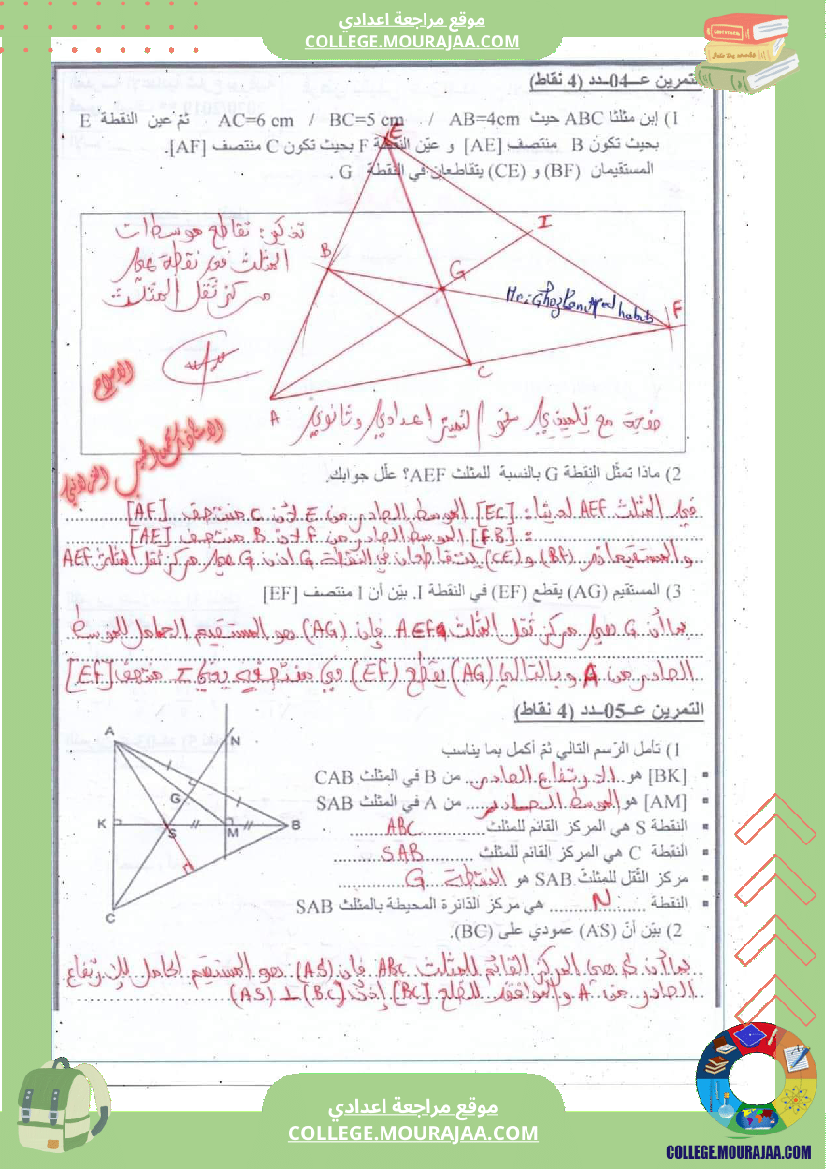 موقع مراجعة اعدادي
COLLEGE.MOURAJAA.COM
التمرين عـ04ـدد (4 نقاط)
1) إبن مثلثا ABC حيث AB=4cm / BC=5 cm / AC=6 cm ثم عين النقطة E
بحيث تكون B منتصف [AE] و عيّن النقطة F بحيث تكون C منتصف [AF].
المستقيمان (BF) و (CE) يتقاطعان في النقطة G .
E
تذكر: تقاطع موسطات
المثلث في نقطة هي
مركز ثقل المثلث
B
I
G
F
C
A
الاصلاح
2) ماذا تمثّل النقطة G بالنسبة للمثلث AEF؟ علّل جوابك.
في المثلث AEF لدينا: [EC] الموسط الصادر من E لأن C منتصف [AF]
: [FB] الموسط الصادر من F لأن B منتصف [AE]
و المستقيمان (BF) و (CE) يتقاطعان في النقطة G اذن G هي مركز ثقل المثلث AEF
3) المستقيم (AG) يقطع (EF) في النقطة I. بيّن أن I منتصف [EF]
بما أن G هي مركز ثقل المثلث AEF فإن (AG) هو المستقيم الحامل للموسط
الصادر من A و بالتالي (AG) يقطع (EF) في منتصفه يعني I منتصف [EF]
التمرين عـ05ـدد (4 نقاط)
1) تأمل الرّسم التالي ثمّ أكمل بما يناسب
[BK] هو الارتفاع الصادر من B في المثلث CAB
[AM] هو الموسط الصادر من A في المثلث SAB
النقطة S هي المركز القائم للمثلث ABC
النقطة C هي المركز القائم للمثلث SAB
مركز الثّقل للمثلث SAB هو النقطة G
النقطة N هي مركز الدّائرة المحيطة بالمثلث SAB
A
N
G
K
S
M
B
C
2) بيّن أنّ (AS) عمودي على (BC).
بما أن S هي المركز القائم للمثلث ABC فإن (AS) هو المستقيم الحامل للإرتفاع
الصادر من A و الموافق للضلع [BC] إذن (AS) ⊥ (BC)
موقع مراجعة اعدادي
COLLEGE.MOURAJAA.COM
COLLEGE.MOURAJAA.COM